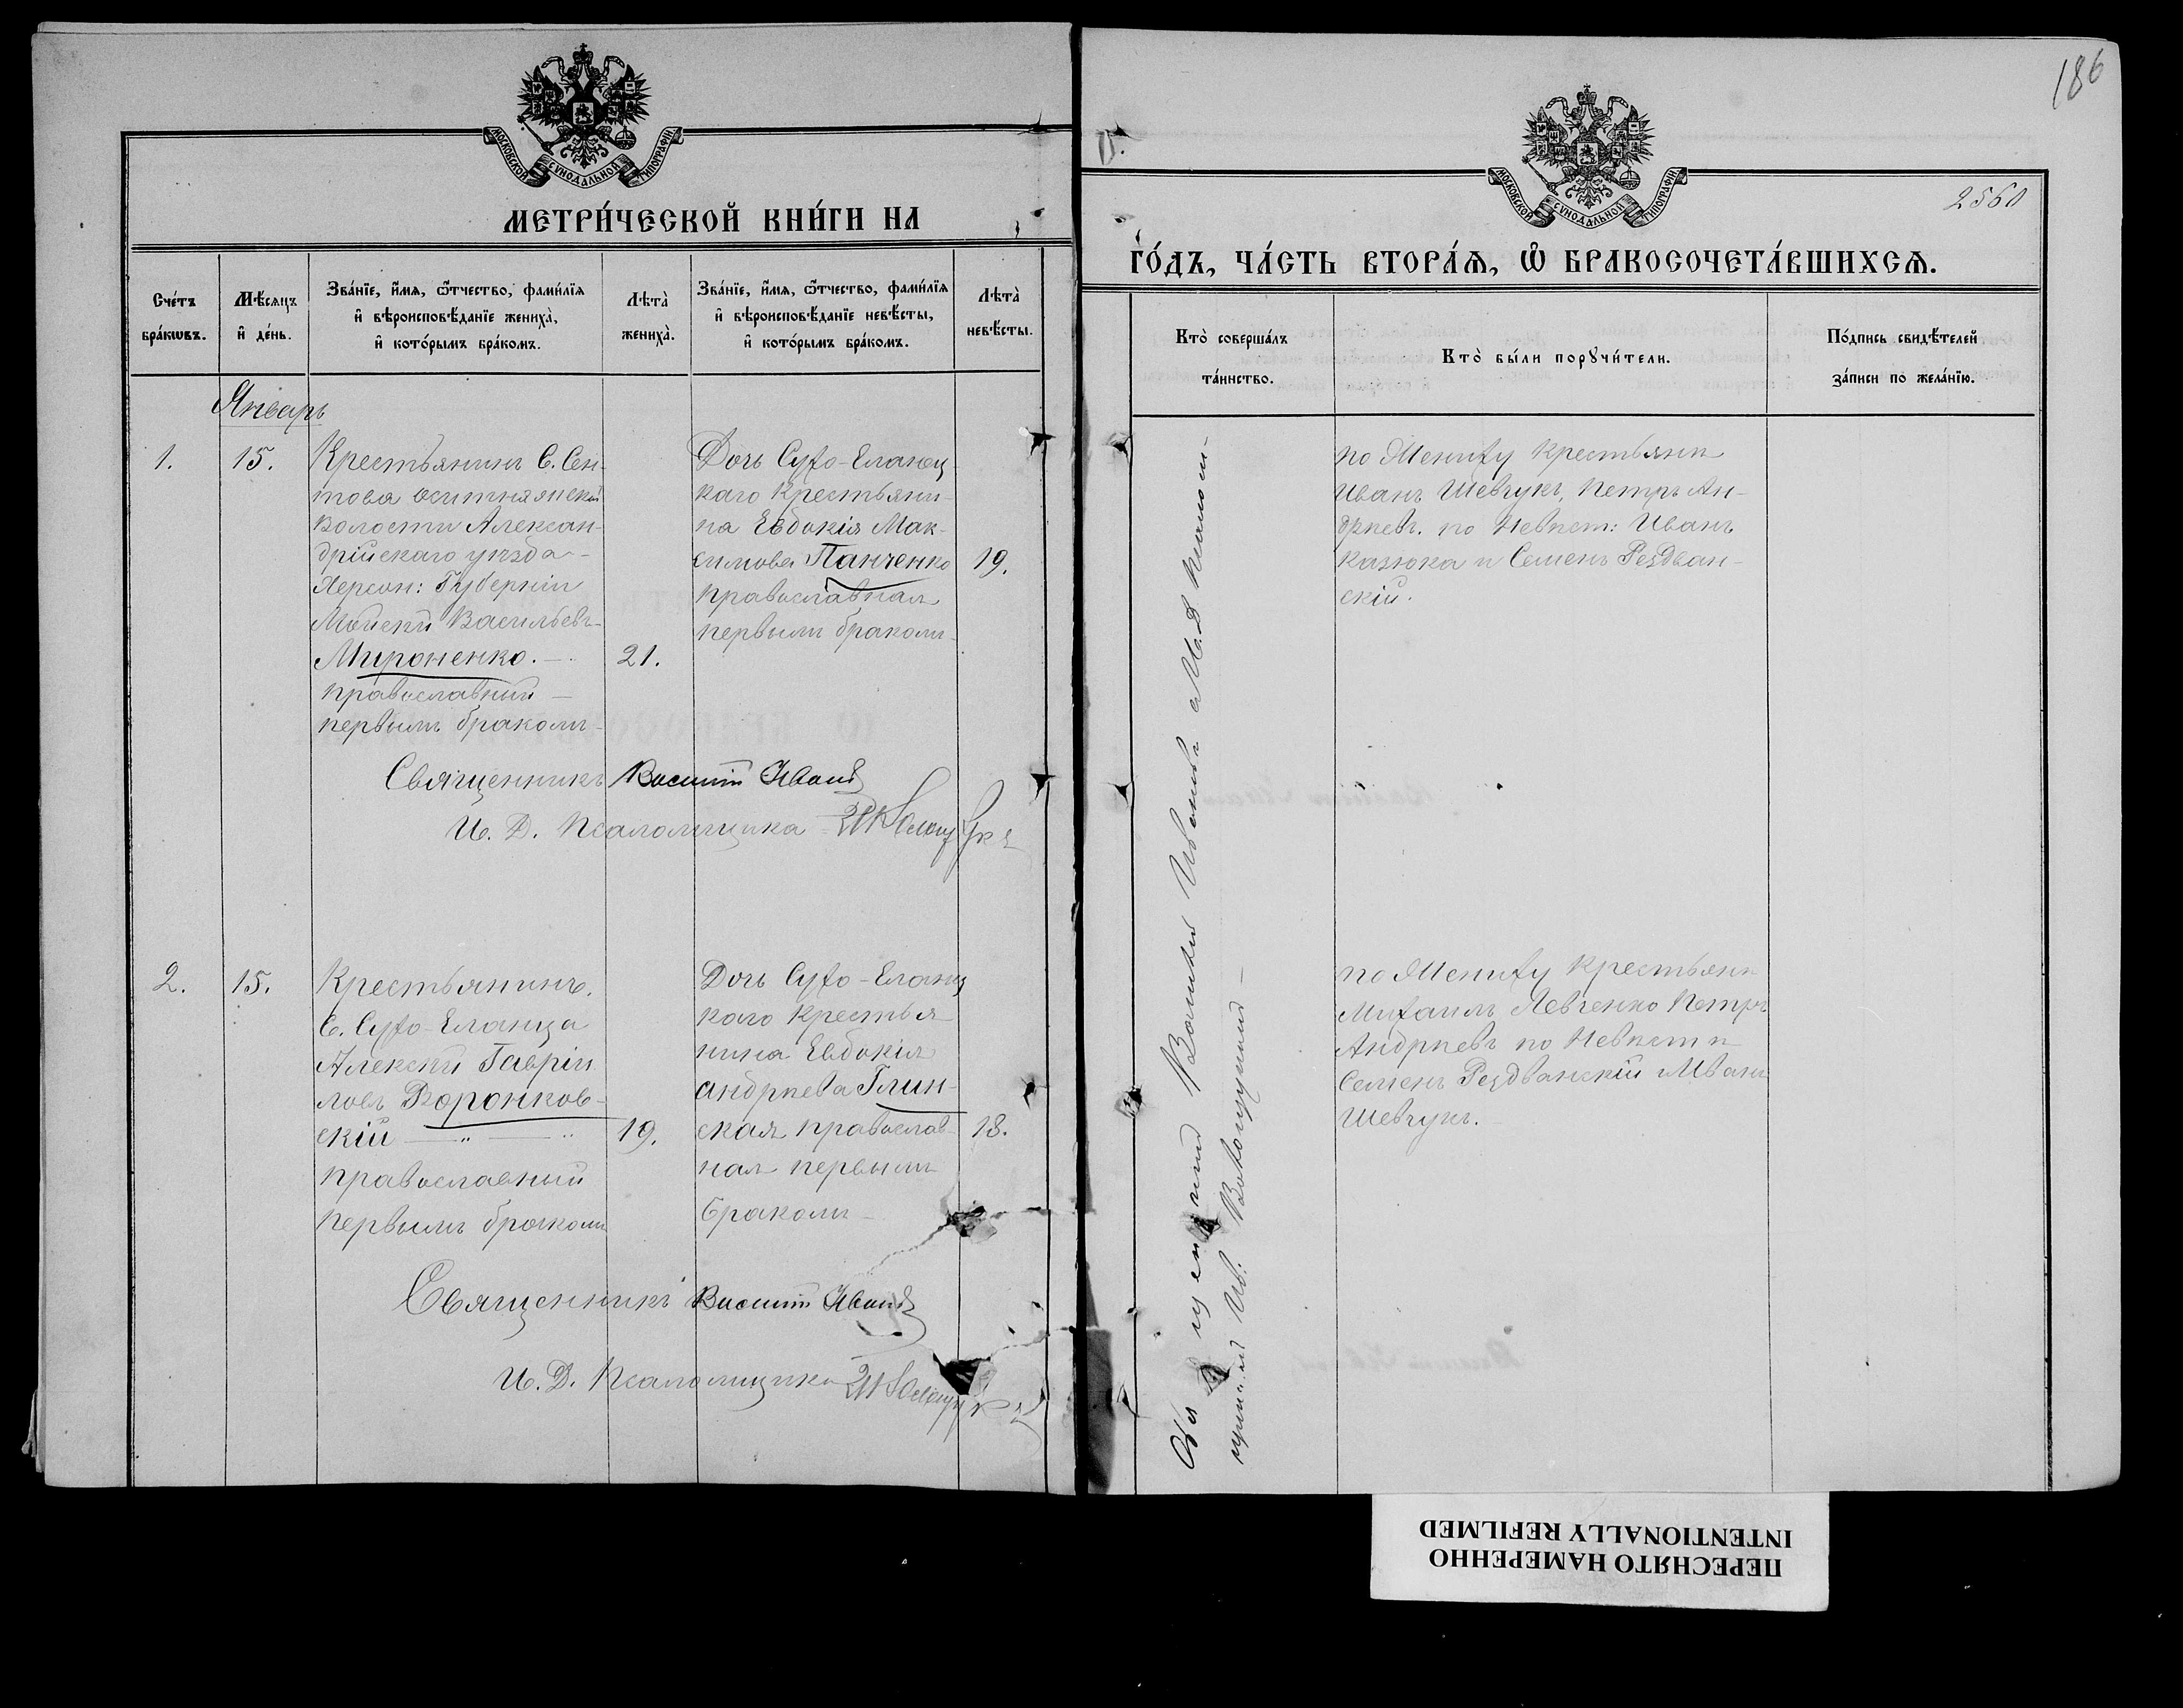 186
2560
МОСКОВСКОЙ СѴНОДАЛЬНОЙ ТИПОГРАФІИ
МЕТРИ́ЧЕСКОЙ КНИ́ГИ НА
МОСКОВСКОЙ СѴНОДАЛЬНОЙ ТИПОГРАФІИ
ГО́ДЪ, ЧА́СТЬ ВТОРА́Ѧ, Ѽ БРАКОСОЧЕТА́ВШИХСѦ.
Сче́тъ
бра́кѡвъ.
Мѣ́сяцъ
и҆ де́нь.
Зва́нїе, и҆́мя, ѻ҆́тчество, фами́лїя
и҆ вѣроисповѣ́данїе жениха̀,
и҆ кото́рымъ бра́комъ.
Лѣта̀
жениха̀.
Зва́нїе, и҆́мя, ѻ҆́тчество, фами́лїя
и҆ вѣроисповѣ́данїе невѣ́сты,
и҆ кото́рымъ бра́комъ.
Лѣта̀
невѣ́сты.
Кто̀ соверша́лъ
та́инство.
Кто̀ бы́ли порꙋчи́тели.
По́дпись свидѣ́телей
за́писи по жела́нїю.
Январь
1.
15.
Крестьянинъ С. Сен-
това
волости Алексан-
дрійскаго уѣзда
Херсон: Губерніи
Моисей Васильевъ
Мироненко.
православный
первымъ бракомъ
21.
Дочь Сухо-Еланец
каго крестьяни-
на Евдокія Мак-
симова Панченко
православная
первымъ бракомъ
19.
по Жениху крестьяне
Иванъ Шевчукъ, Петръ Ан-
дреевъ. по Невѣст: Иванъ
Казюка и Семенъ Рездван-
скій.
Священникъ Василій Иванов
И. Д. Псаломщика
2.
15.
Крестьянинъ
С. Сухо-Еланца
Алексѣй Гавріи
ловъ Воронков-
скій
православный
первымъ бракомъ
19.
Дочь Сухо-Еланец
каго крестья
нина Евдокія
Андреева Глин-
ская православ-
ная первымъ
бракомъ
18.
по Жениху крестьяне
Михаилъ Левченко Петръ
Андреевъ по Невѣстѣ
Семенъ Рездванскій Иванъ
Шевчукъ.
Священникъ Василій Иванов
И. Д. Псаломщика
Священникъ Василій Ивановъ с И. Д. Псалом-
щика Ив:
ПЕРЕСНЯТО НАМЕРЕННО
INTENTIONALLY REFILMED